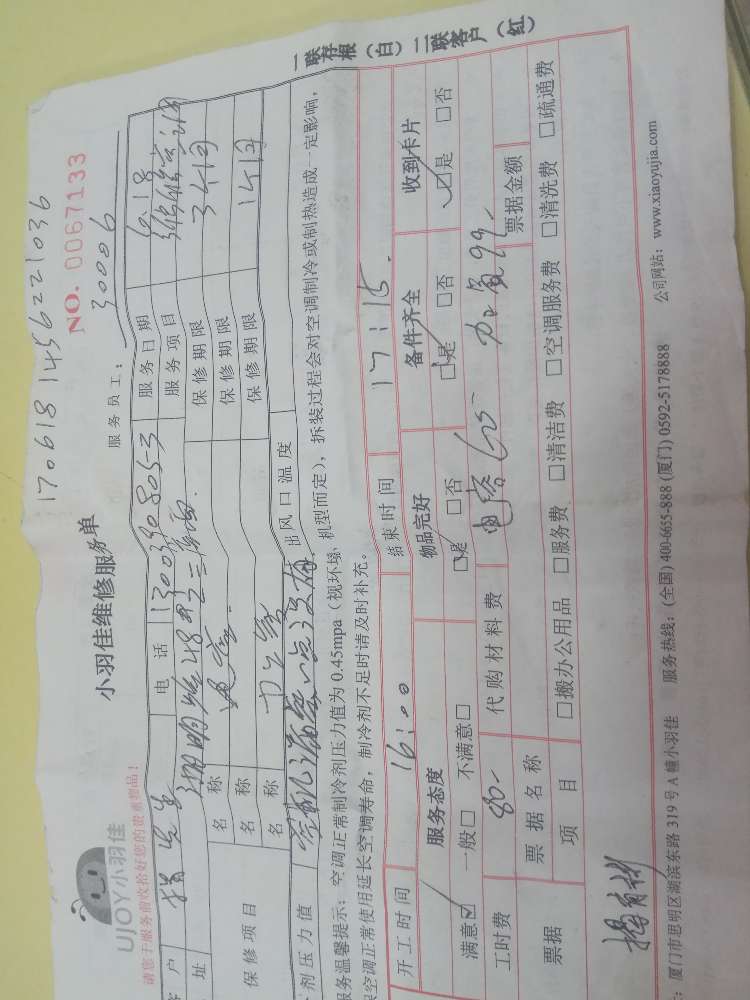 170618145622 1036
UJOY小羽佳
小羽佳维修服务单
NO. 0067133
请您于服务前收拾好您的贵重物品！
服务员工： 30006
客户
电话
服务日期 6.18
址
服务项目
保修项目
名称
保修期限 3个月
名称
保修期限
名称
保修期限 1个月
剂压力值
出风口温度
服务温馨提示：空调正常制冷剂压力值为0.45mpa（视环境、机型而定），拆装过程会对空调制冷或制热造成一定影响，
保空调正常使用延长空调寿命，制冷剂不足时请及时补充。
开工时间 16:00 结束时间 17:15
服务态度 物品完好 备件齐全 收到卡片
满意☑ 一般□ 不满意□ ☑是 □否 ☑是 □否 ☑是 □否
工时费 80- 代购材料费
票据 票据名称 票据金额
项目 □搬办公用品 □服务费 □清洁费 □空调服务费 □清洗费 □疏通费
：厦门市思明区湖滨东路319号A幢小羽佳 服务热线：(全国) 400-6655-888 (厦门) 0592-5178888 公司网站：www.xiaoyujia.com
一联存根（白）二联客户（红）